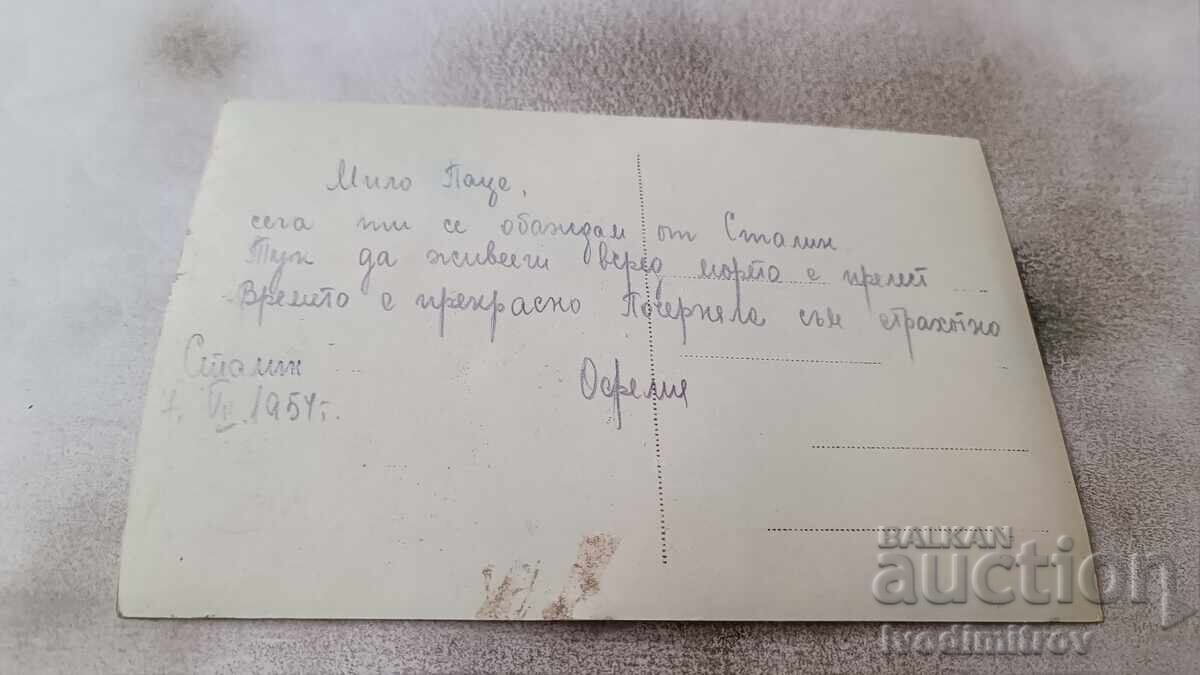 Мило Паце,
сега ти се обаждам от Сталин
Тук да живееш върху морето е прелест
Времето е прекрасно Почерняла съм страхотно
Офелия
Сталин
7. VII. 1954 г.
BALKAN
auction
ivodimitrov